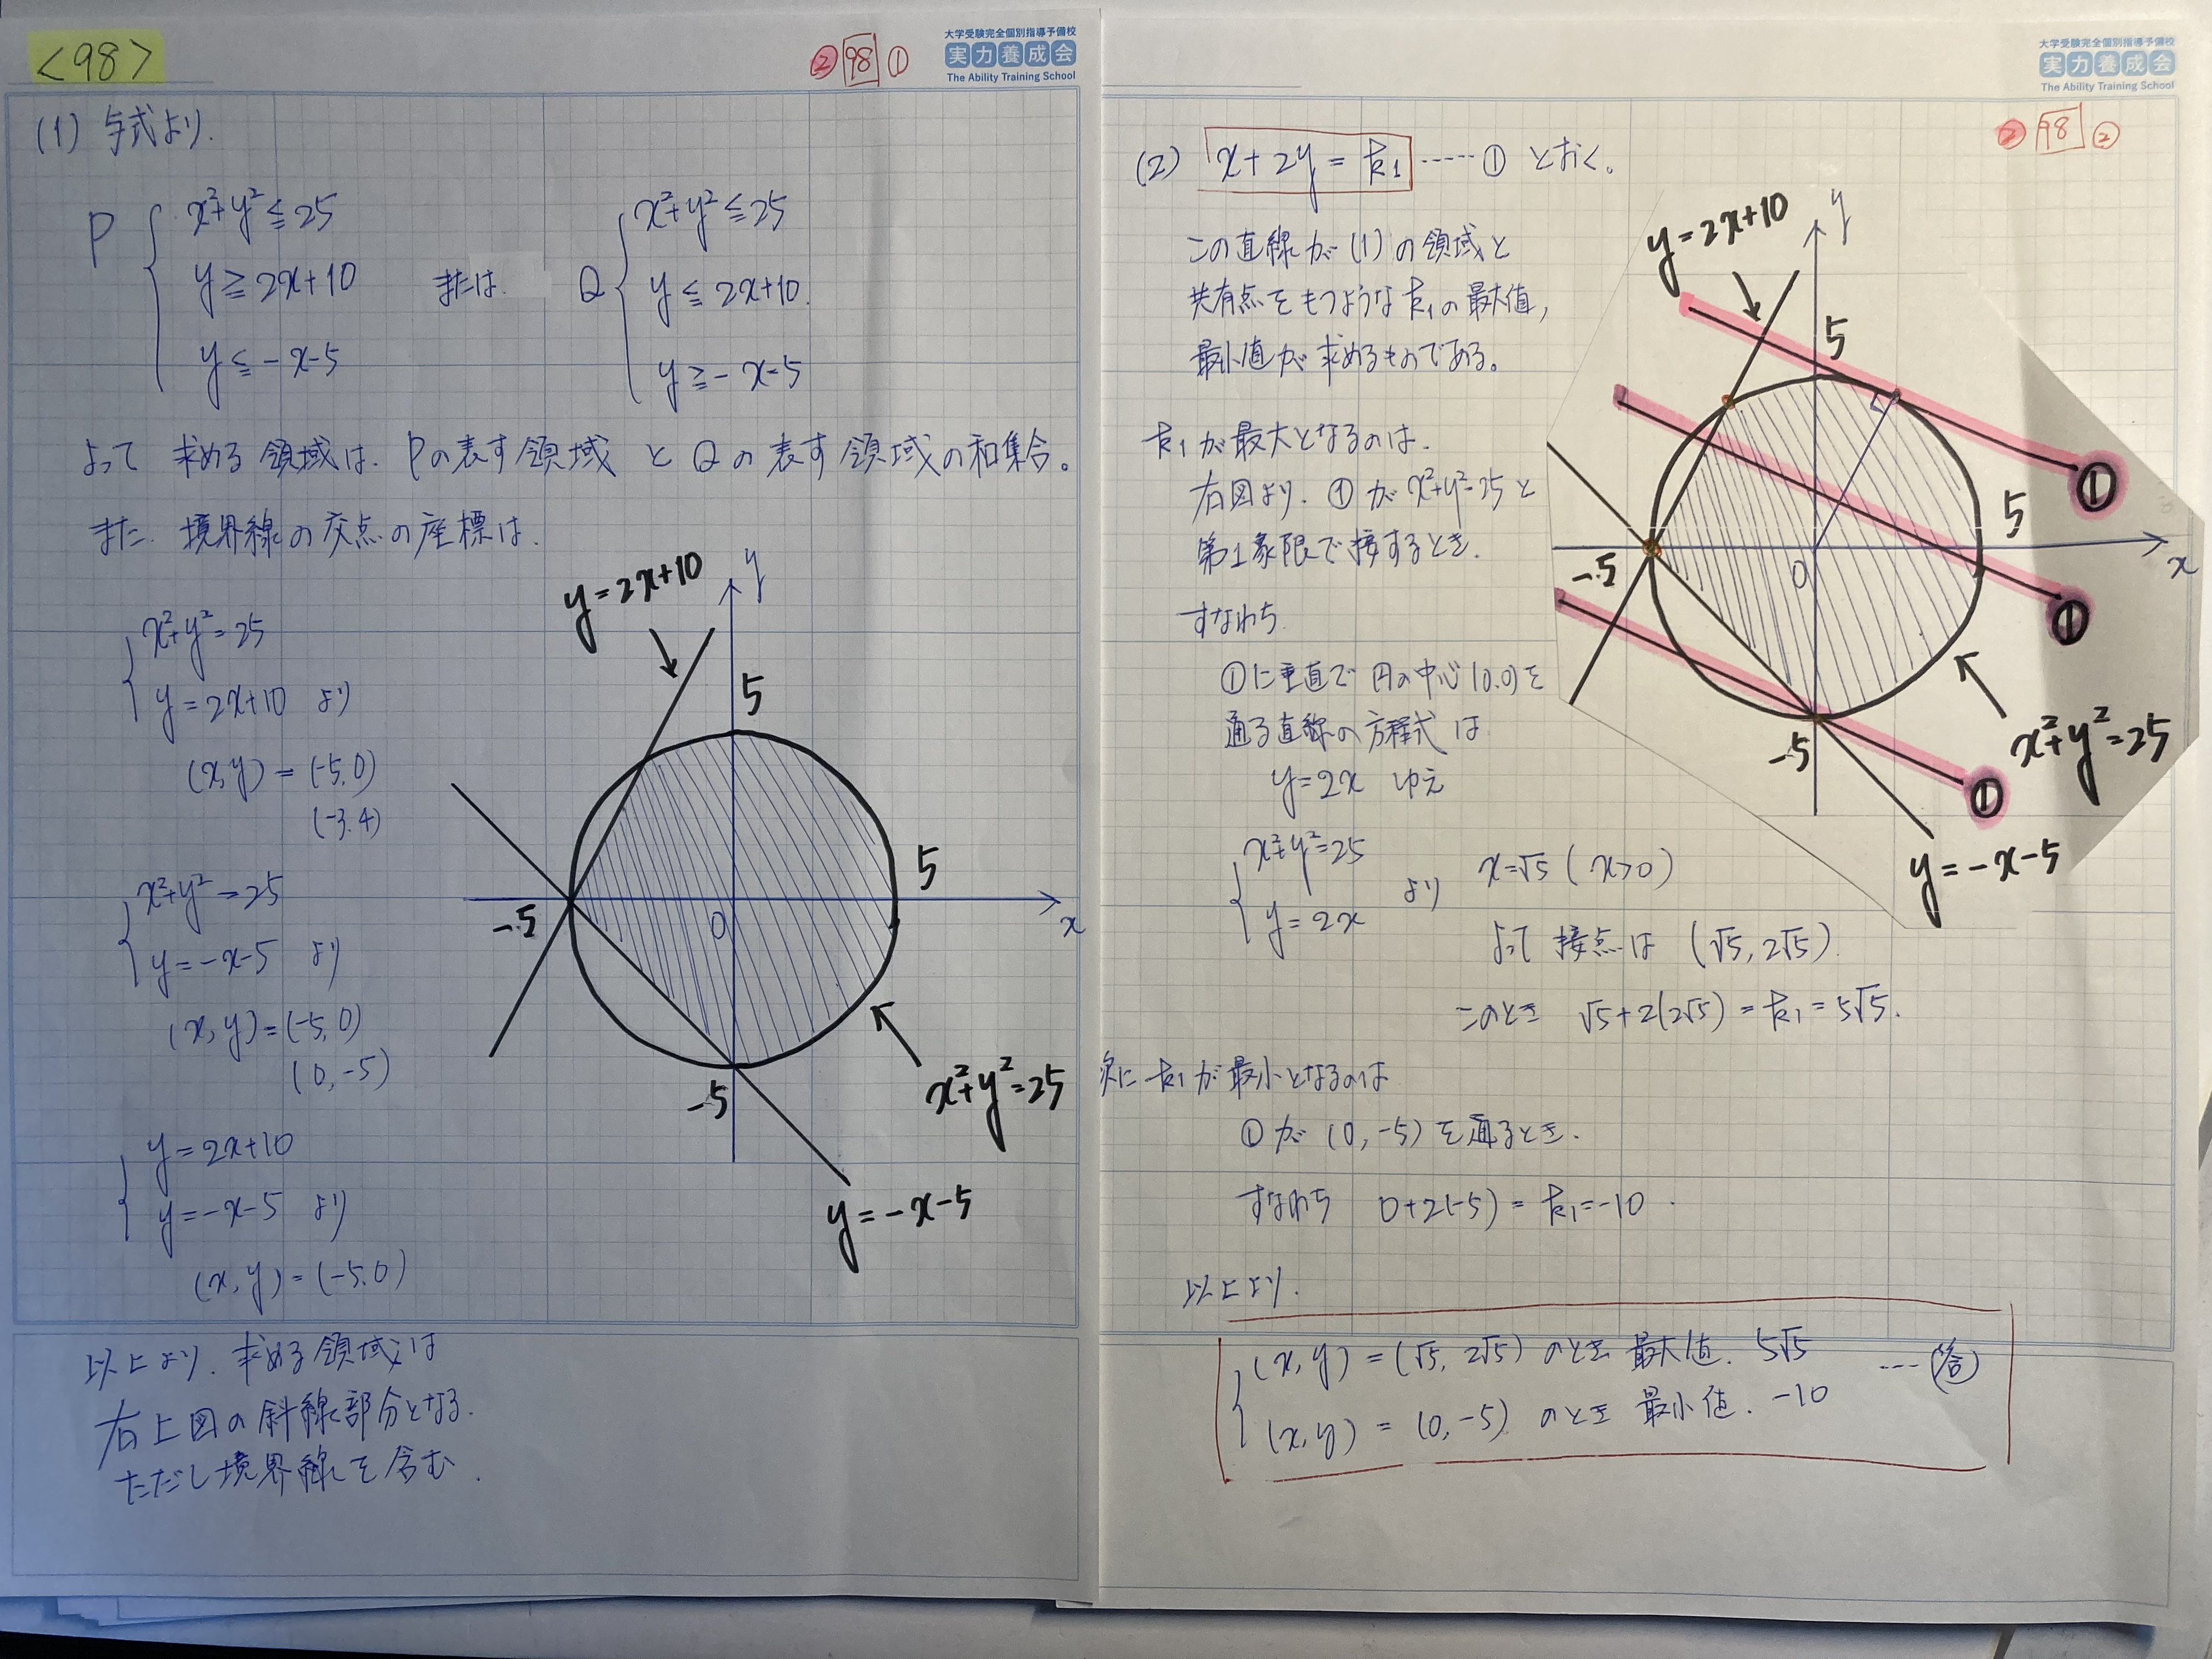 <98>
② 98 ①
大学受験完全個別指導予備校
実力養成会
The Ability Training School
(1) 与式より.
P { x²+y²≦25
y≧2x+10
y≦-x-5
または
Q { x²+y²≦25
y≦2x+10
y≧-x-5
よって 求める領域は. Pの表す領域 と Qの表す領域の和集合。
また. 境界線の交点の座標は.
{ x²+y²=25
y=2x+10 より
(x,y)=(-5,0)
(-3,4)
{ x²+y²=25
y=-x-5 より
(x,y)=(-5,0)
(0,-5)
{ y=2x+10
y=-x-5 より
(x,y)=(-5,0)
y=2x+10
y
5
5
-5
0
x
-5
x²+y²=25
y=-x-5
以上より. 求める領域は
右上図の斜線部分となる.
ただし境界線を含む.
大学受験完全個別指導予備校
実力養成会
The Ability Training School
② 98 ②
(2) x+2y=k₁ ……① とおく。
この直線が(1)の領域と
共有点をもつようなk₁の最大値,
最小値が求めるものである。
k₁が最大となるのは.
右図より. ①がx²+y²=25と
第1象限で接するとき.
すなわち
①に垂直で円の中心(0,0)を
通る直線の方程式は
y=2x ゆえ
{ x²+y²=25
y=2x より
x=√5 (x>0)
よって 接点は (√5, 2√5)
このとき √5+2(2√5)=k₁=5√5.
次に k₁が最小となるのは
①が(0,-5)を通るとき.
すなわち 0+2(-5)=k₁=-10.
y=2x+10
y
5
①
5
-5
0
x
①
-5
①
x²+y²=25
y=-x-5
以上より.
{ (x,y)=(√5, 2√5) のとき 最大値. 5√5
(x,y)=(0,-5) のとき 最小値. -10 ……(答)